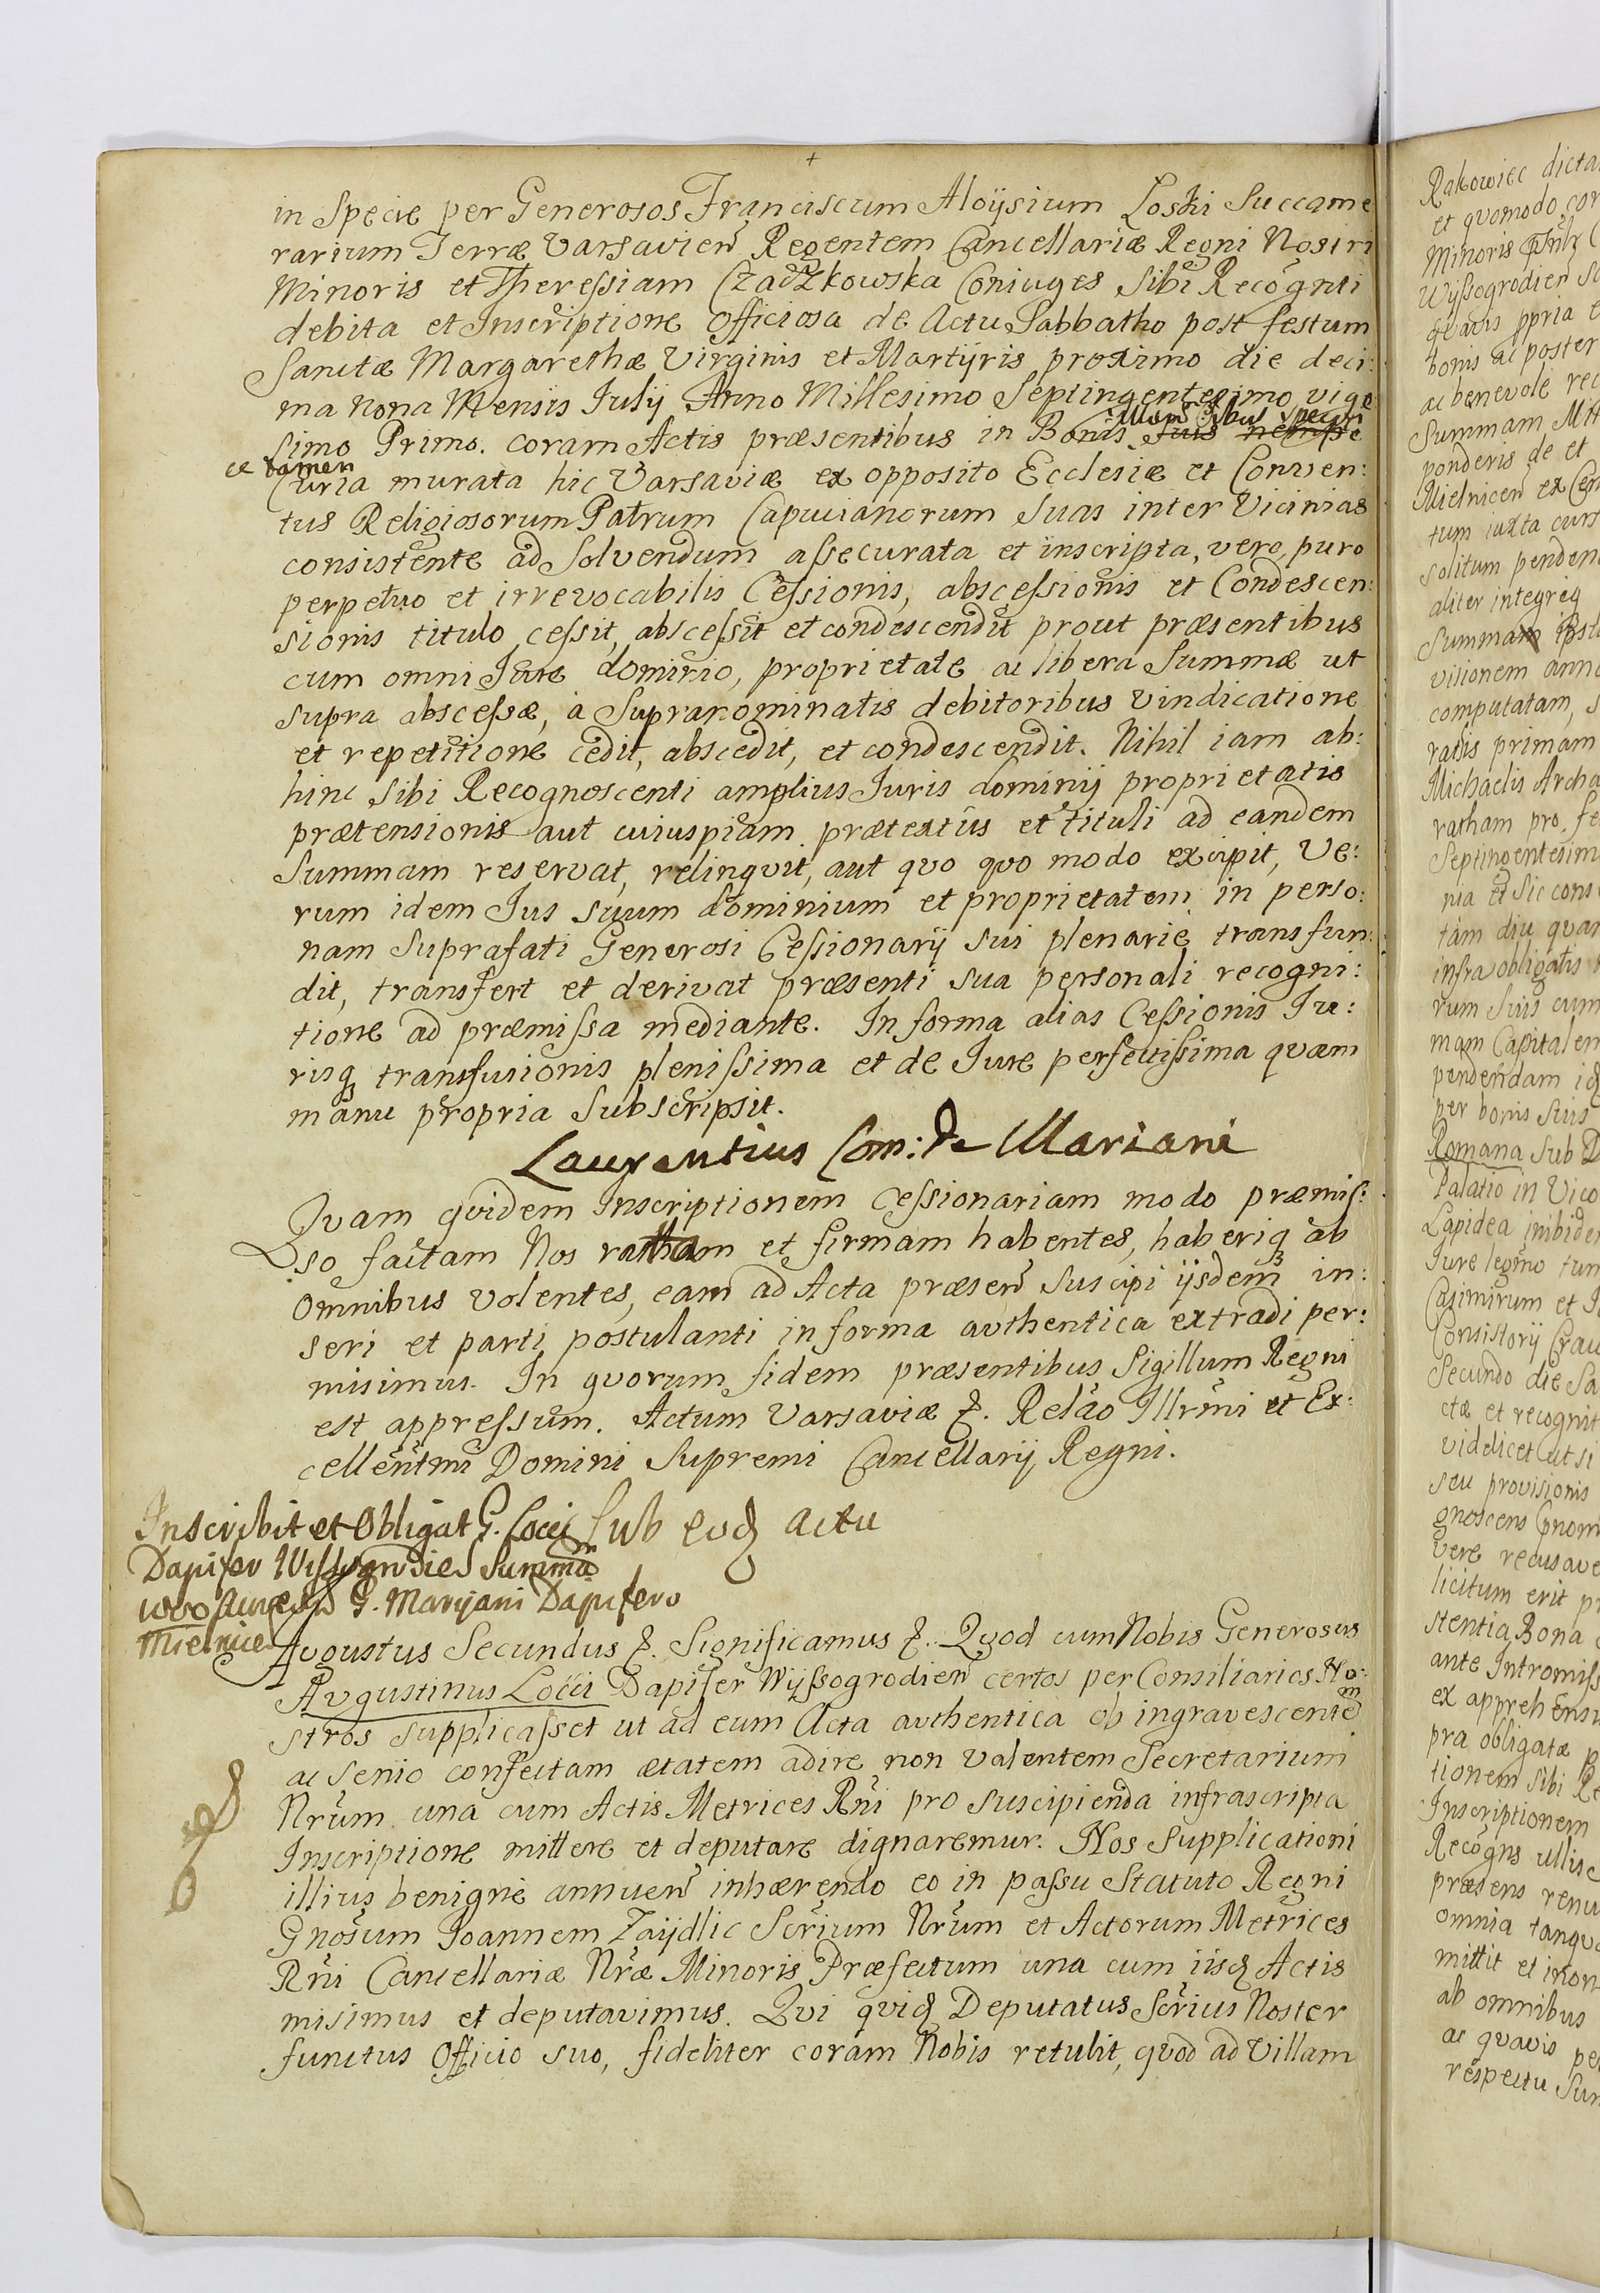 in Specie per Generosos Franciscum Aloÿsium Loski Succame
rarium Terræ Varsavien̄ Regentem Cancellariæ Regni Nostri
Minoris et Theressiam Czadzkowska Coniuges Sibi Recognti
debita et Inscriptione Officiosa de Actu Sabbatho post festum
Sanctæ Margarethæ Virginis et Martÿris proximo die deci:
ma nona Mensis Julij Anno Millesimo Septingentesimo vige
simo Primo. coram Actis præsentibus in Bonis suis nempe
ce tamen
Curia murata hic Varsaviæ ex opposito Ecclesiæ et Conven:
tus Religiosorum Patrum Capucianorum Suas inter Vicinias
consistente ad Solvendum assecurata et inscripta, vero, puro
perpetuo et irrevocabilis Cessionis, abscessionis et Condescen:
sionis titulo cessit, abscessit et condescendit prout præsentibus
cum omni Jure dominio, proprietate ac libera Summæ ut
supra abscessæ, à Supranominatis debitoribus vindicatione
et repetitione cedit, abscedit, et condescendit. Nihil iam ab:
hinc Sibi Recognoscenti amplius Juris dominij proprietatis
prætensionis aut cuiuspiam prætextus et tituli ad eandem
Summam reservat, relinqvit, aut qvo qvo modo excipit, Ve:
rum idem Jus suum dominium et proprietatem in perso:
nam Suprafati Generosi Cessionarij Sui plenarie transfun:
dit, transfert et derivat præsenti sua personali recogni:
tione ad præmissa mediante. In forma alias Cessionis Ju:
risq transfusionis plenissima et de Jure perfectissima qvam
manu propria Subscripsit.
Laurentius Com: de Mariani
Qvam qvidem Inscriptionem Cessionariam modo præmis:
so factam Nos ratham et firmam habentes, haberiq ab
omnibus volentes, eam ad Acta præsen̄ suscipi ijsdemq in:
seri et parti postulanti in forma avthentica extradi per:
misimus. In qvorum fidem præsentibus Sigillum Regni
est appressum. Actum Varsaviæ &. Relāo Illr̄mi et Ex:
cellentmi Domini Supremi Cancellarij Regni.
Inscribit et Obligat G. Locci Sub eoq actu
Dapifer Wissogrodien Summam
1000 Aureor G. Maryani Dapifero
Mielnicen
Avgustus Secundus &. Significamus &. Qvod cum Nobis Generosus
Avgustinus Locci Dapifer Wyssogrodien̄ certos per Consiliarios No:
stros supplicasset ut ad eum Acta avthentica ob ingravescentem
ac senio confectam ætatem adire non valentem Secretarium
Nr̄um una cum Actis Metrices Rn̄i pro suscipienda infrascripta
Inscriptione mittere et deputare dignaremur. Nos Supplicationi
illius benigne annuen̄ inhærendo eo in passu Statuto Regni
Gnōsum Joannem Zaijdlic Scr̄ium Nr̄um et Actorum Metrices
Rn̄i Cancellariæ Nr̄æ Minoris Præfectum una cum iisq Actis
misimus et deputavimus. Qvi qviq Deputatus Scr̄ius Noster
functus Officio suo, fideliter coram Nobis retulit, qvod ad Villam
Rakowiec dicta
et qvomodo
Minoris
Wyssogrodien
bonis ac poster
ac benevole
Summam
ponderis de et
Mielnicen̄ ex
tum iuxta
solitum
aliter integriq
Summam
computatam,
ratis primam
Michaelis
ratham pro
Septingentesim
nia et Sic
tam diu qvam
infra obligatis
rum Suis cum
mam Capitalem
pendendam
per bonis Suis
Romana Sub
Palatio in Vico
Lapidea inibidem
Jure
Casimirum et
Consistorij
Secundo die
ctæ et recognit
videlicet ut si
seu provisionis
licitum erit
Bona
ante Intromiss
pra obligatæ
tionem Sibi
Inscriptionem
præsens
omnia tanqv
mittit et
ab omnibus
ac qvavis
respectu